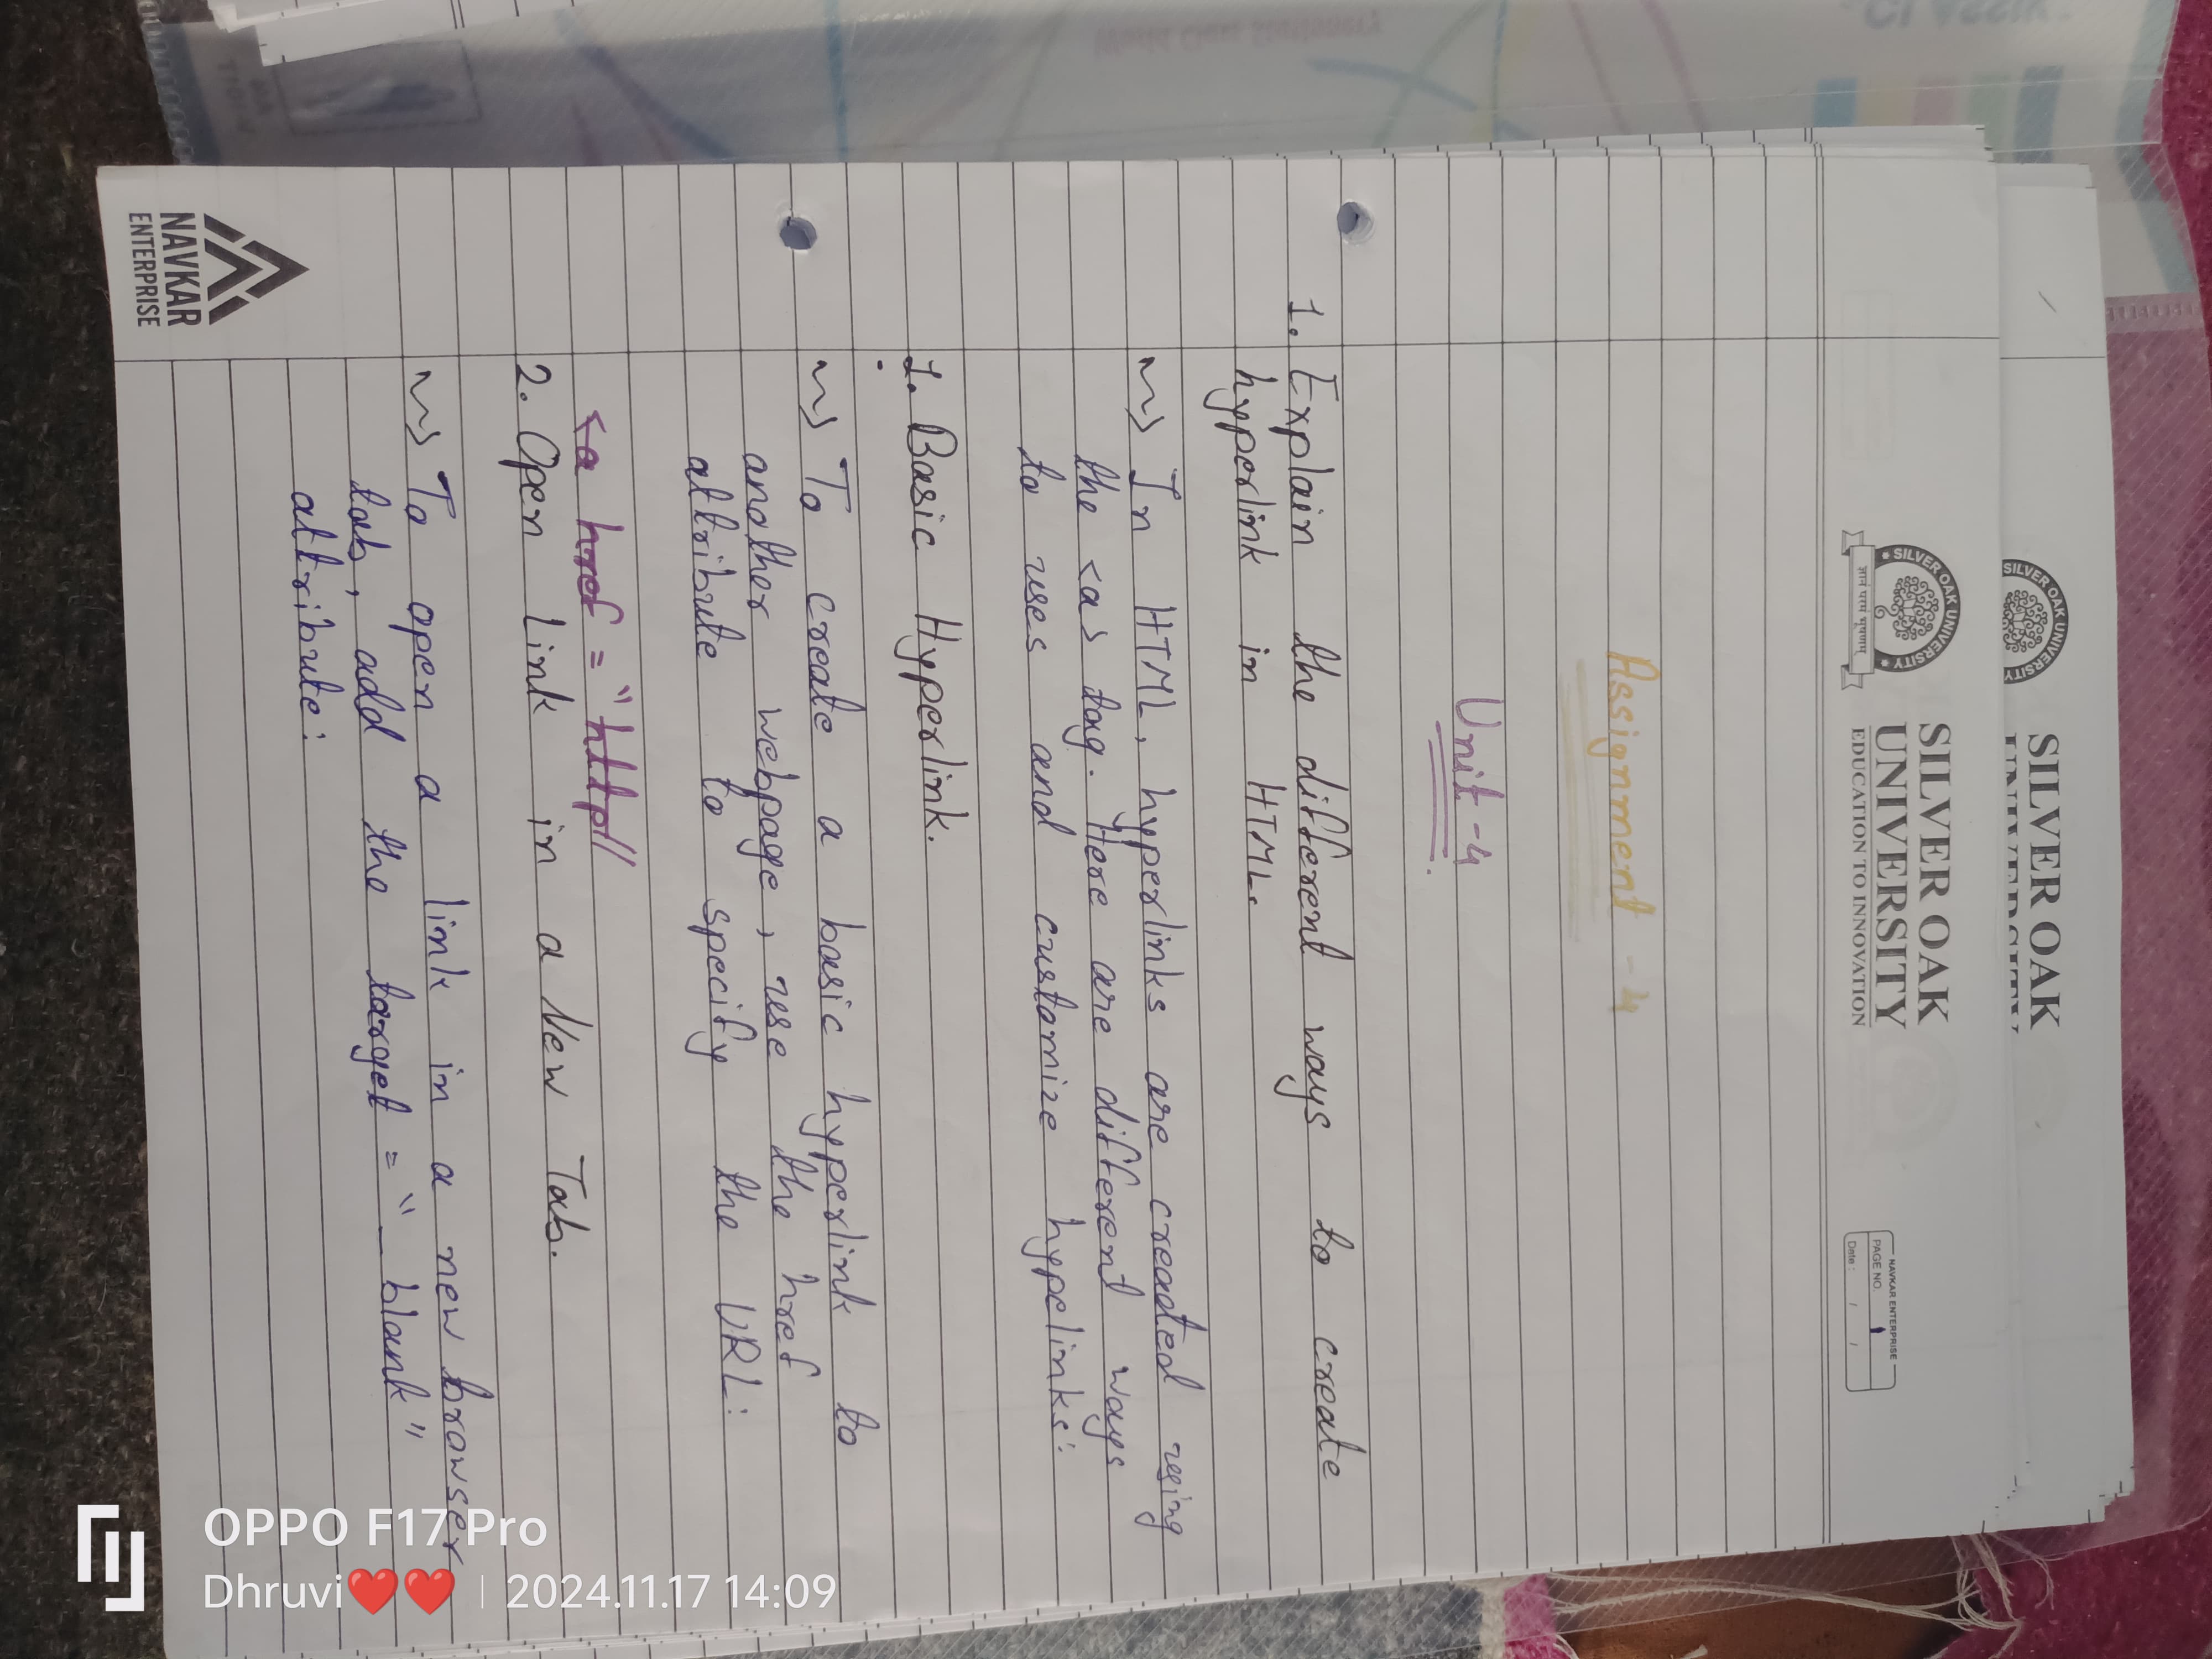 SILVER OAK
SILVER OAK UNIVERSITY
SILVER OAK
UNIVERSITY
EDUCATION TO INNOVATION
SILVER OAK UNIVERSITY
NAVKAR ENTERPRISE
PAGE NO. 1
Date : / /
Assignment - 4
Unit - 4
1. Explain the different ways to create
hyperlink in HTML.
~> In HTML, hyperlinks are created using
the <a> tag. Here are different ways
to uses and customize hypelinks:
1. Basic Hyperlink.
~> To create a basic hyperlink to
another webpage, use the href
attribute to specify the URL:
<a href = "http//
2. Open link in a New Tab.
~> To open a link in a new browser
tab, add the target = "_blank"
attribute:
NAVKAR
ENTERPRISE
OPPO F17 Pro
Dhruvi❤️❤️ | 2024.11.17 14:09